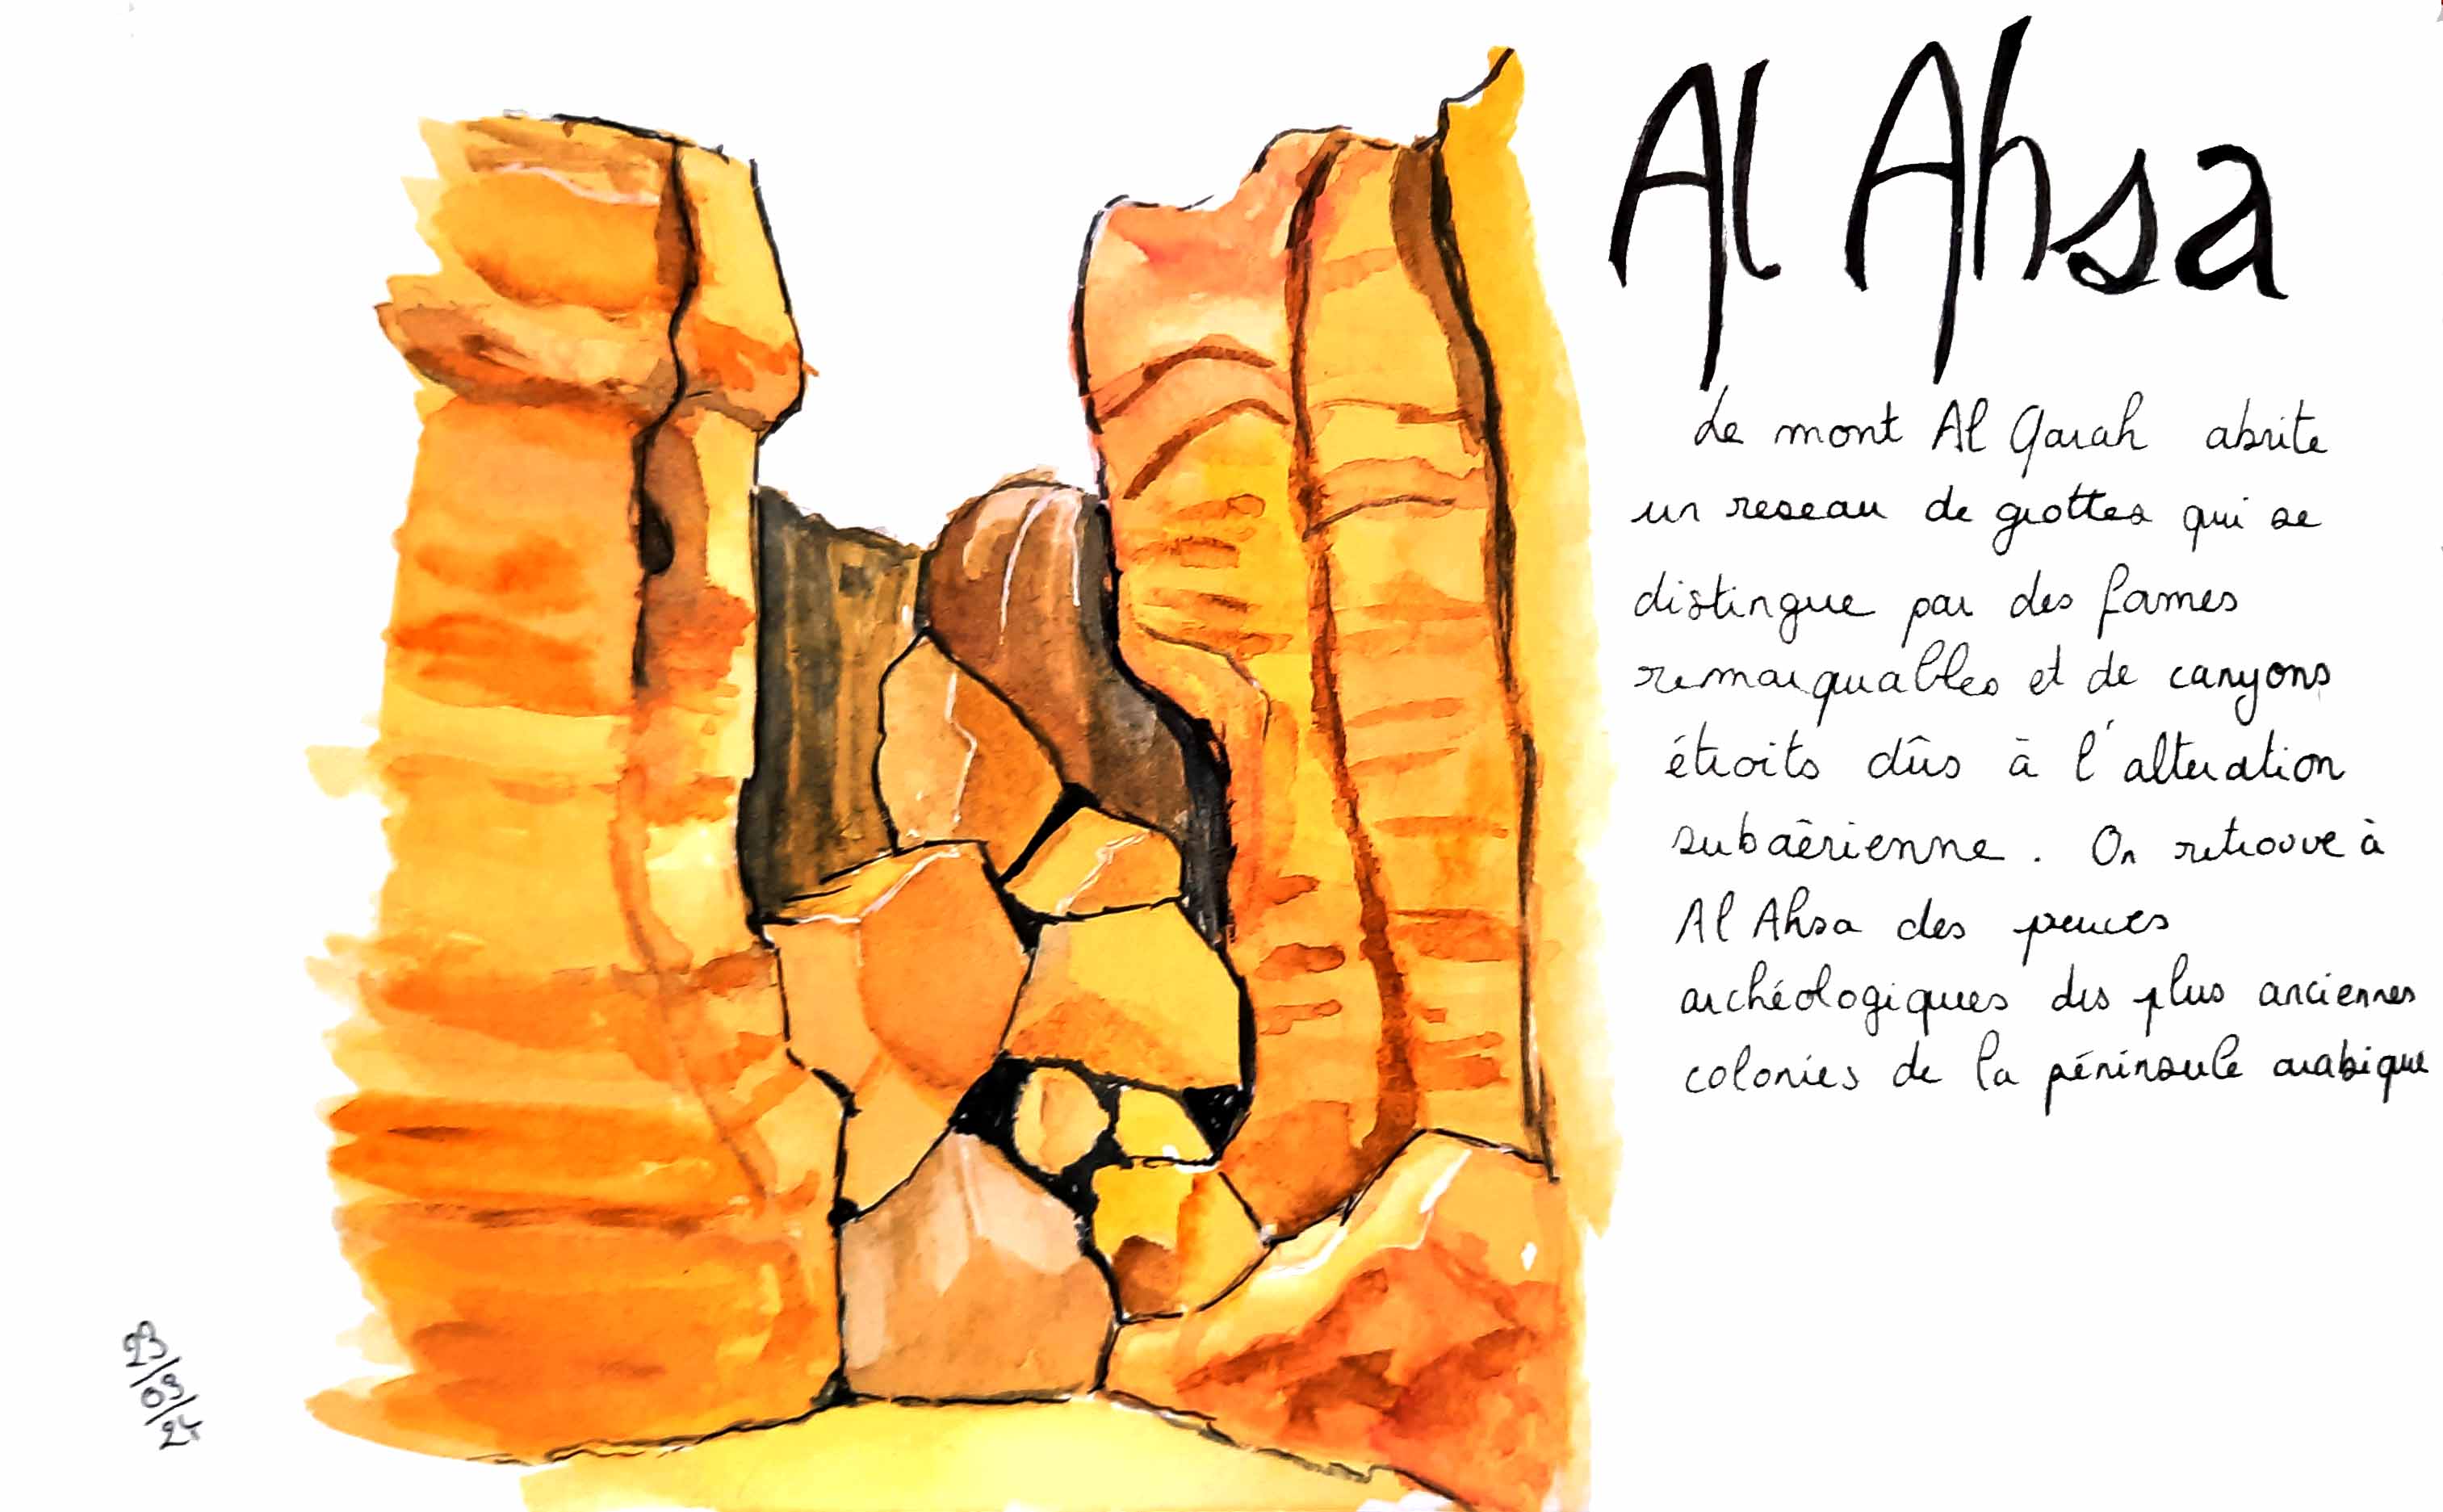 Al Ahsa
Le mont Al Qarah abrite
un reseau de grottes qui se
distingue par des formes
remarquables et de canyons
étroits dûs à l'alteration
subaérienne. On retrouve à
Al Ahsa des preuves
archéologiques des plus anciennes
colonies de la péninsule arabique
23/09/24